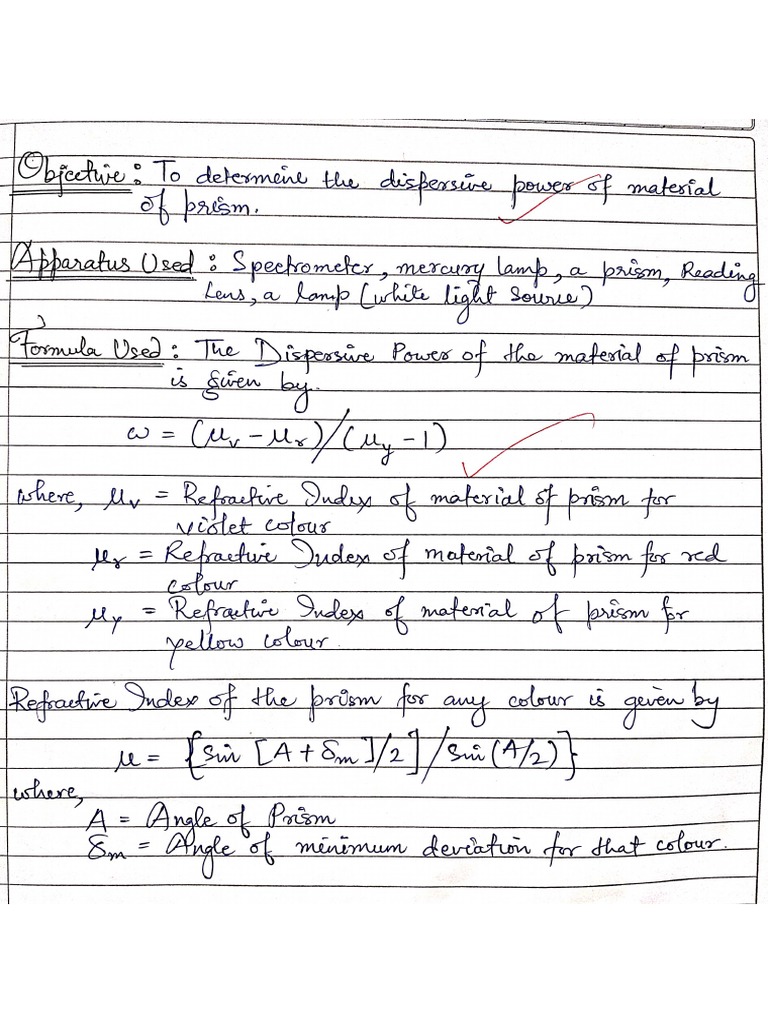 Objective: To determine the dispersive power of material
of prism.
Apparatus Used: Spectrometer, mercury lamp, a prism, Reading
Lens, a lamp (white light source)
Formula Used: The Dispersive Power of the material of prism
is given by.
ω = (μv - μr)/(μy - 1)
where, μv = Refractive Index of material of prism for
violet colour
μr = Refractive Index of material of prism for red
colour
μy = Refractive Index of material of prism for
yellow colour.
Refractive Index of the prism for any colour is given by
μ = {sin [A + δm]/2]/sin(A/2)}
where,
A = Angle of Prism
δm = Angle of minimum deviation for that colour.